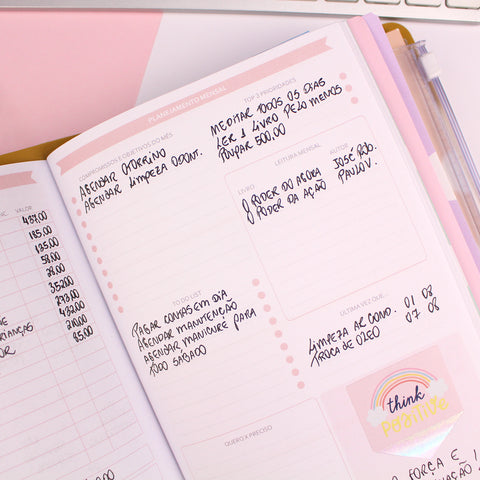 VALOR
437,00
185,00
135,00
58,00
28,00
352,00
293,00
432,00
210,00
95,00
PLANEJAMENTO MENSAL
COMPROMISSOS E OBJETIVOS DO MÊS
AGENDAR OTORRINO
AGENDAR LIMPEZA ODONT.
TOP 3 PRIORIDADES
MEDITAR TODOS OS DIAS
LER 1 LIVRO PELO MENOS
POUPAR 500,00
LEITURA MENSAL
LIVRO AUTOR
O PODER DO AGORA JOSE ROB.
PODER DA AÇÃO PAULO V.
TO DO LIST
PAGAR CONTAS EM DIA
AGENDAR MANUTENÇÃO
AGENDAR MANICURE PARA
TODO SABADO
ÚLTIMA VEZ QUE...
LIMPEZA AR COND. 01 08
TROCA DE OLEO 07 08
QUERO X PRECISO
think
POSITIVE
FORÇA E